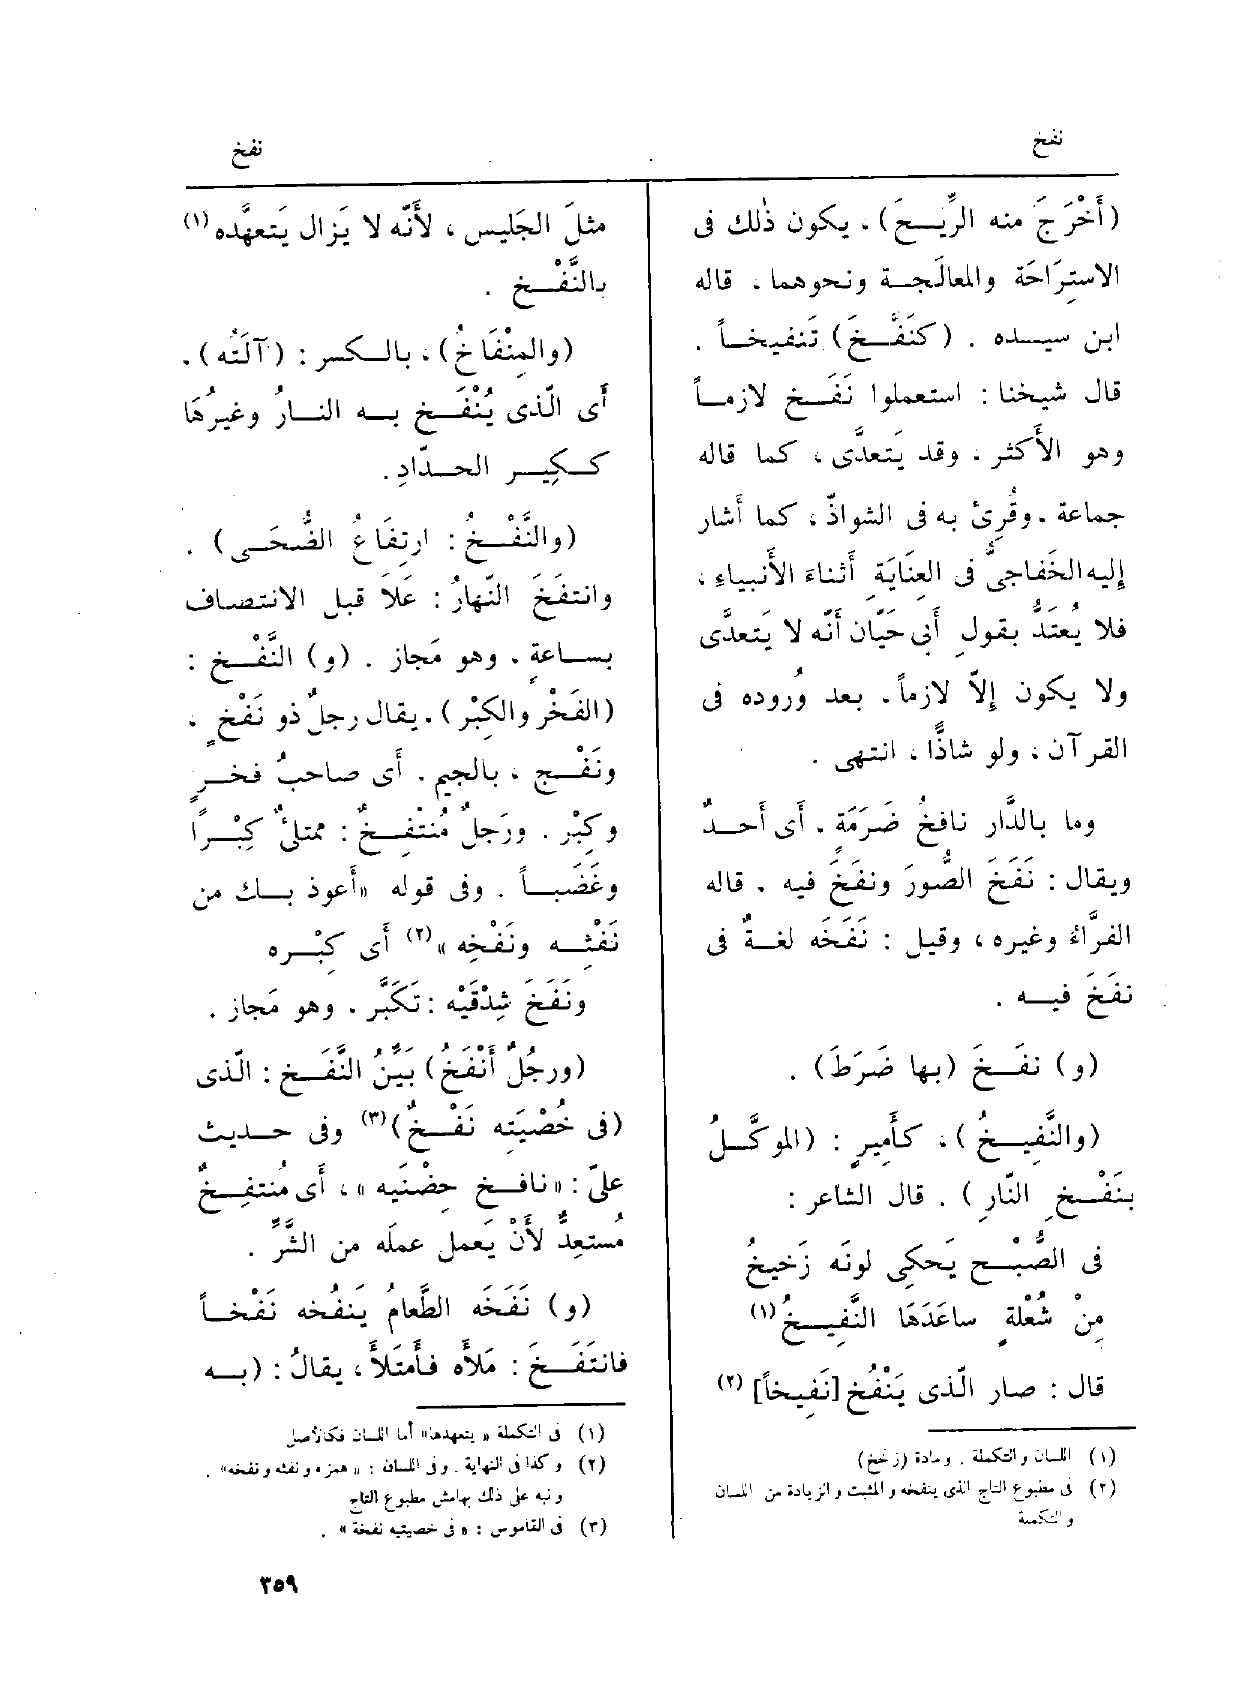 نفخ
نفخ
(أَخْرَجَ منه الرِّيـحَ)، يكون ذٰلك فى
الاستِرَاحَة والمعالَجـة ونحوهما . قاله
ابن سيـده . (كنَفَّـخَ) تَنفيخـاً .
قال شيخنا : استعملوا نَفَـخ لازمـاً
وهو الأَكثر ، وقد يَتعدَّى ، كما قاله
جماعة . وقُرِئَ به فى الشواذّ ، كما أَشار
إِليه الخَفاجىُّ فى العِنَايَةِ أَثناءَ الأَنبياءِ ،
فلا يُعتَدُّ بقولِ أَبى حَيّان أَنّه لا يَتعدَّى
ولا يكون إِلاّ لازماً . بعد وُروده فى
القرآن ، ولو شاذًّا ، انتهى .
وما بالدَّار نافخُ ضَرَمَةٍ . أَى أَحـدٌ
ويقال : نَفَخَ الصُّورَ ونفَخَ فيه . قاله
الفرَّاءُ وغيره ، وقيل : نَفَخَه لغـةٌ فى
نفَخَ فيـه .
(و) نفَـخَ (بها ضَرَطَ) .
(والنَّفِيـخُ)، كأَميرٍ : (الموكَّـلُ
بنَفْـخِ النّارِ) . قال الشاعر :
فى الصُّبْـح يَحكِى لونَه زَخيخُ
مِنْ شُعْلةٍ ساعَدَهَا النَّفِيـخُ (١)
قال : صار الّذى يَنْفُخ [نَفِيخاً] (٢)
(١) اللسان والتكملة . ومادة (زخخ)
(٢) فى مطبوع التاج الذى ينفخه والمثبت والزيادة من اللسان
والتكملة
مثلَ الجَليس ، لأَنّه لا يَزال يَتعهَّده (١)
بالنَّفْـخ .
(والمِنْفَاخُ)، بالـكسر : (آلَتُه) .
أَى الّذى يُنْفَـخ بـه النـارُ وغيرُهَا
كـكِيـر الحـدّادِ .
(والنَّفْـخُ : ارتِفَاعُ الضُّحَـى) .
وانتفَخَ النّهارُ : عَلَا قبل الانتصاف
بسـاعةٍ . وهو مَجاز . (و) النَّفْـخ :
(الفَخْر والكِبْر) . يقال رجلٌ ذو نَفْخٍ ،
ونَفْـج ، بالجيم . أَى صاحبُ فخـرٍ
وكِبْر . ورَجلٌ مُنتفِـخٌ : ممتلئٌ كِبْـرًا
وغَضَبـاً . وفى قوله «أَعوذ بـك من
نَفْثِـه ونَفْخِه » (٢) أَى كِبْـره
ونَفَخَ شِدْقَيْه : تَكبَّر . وهو مَجاز .
(ورجُلٌ أَنْفَخُ) بَيِّنُ النَّفَـخ : الّذى
(فى خُصْيَتِه نَفْـخٌ) (٣) وفى حـديث
علىّ : «نافِـخ حِضْنَيه » ، أَى مُنتفِـخٌ
مُستعِدٌّ لأَنْ يَعمل عملَه من الشَّرّ .
(و) نَفَخَه الطَّعامُ يَنفُخه نَفْخـاً
فانتَفَـخَ : مَلأَه فأَمتَلأَ ، يقالُ : (بـه
(١) فى التكملة « يتعهدها» أما اللسان فكالأصل
(٢) وكذا فى النهاية . وفى اللسان : « همزه ونفثه ونفخه» .
ونبه على ذلك بهامش مطبوع التاج
(٣) فى القاموس : « فى خصيتيه نفخة » .
٣٥٩